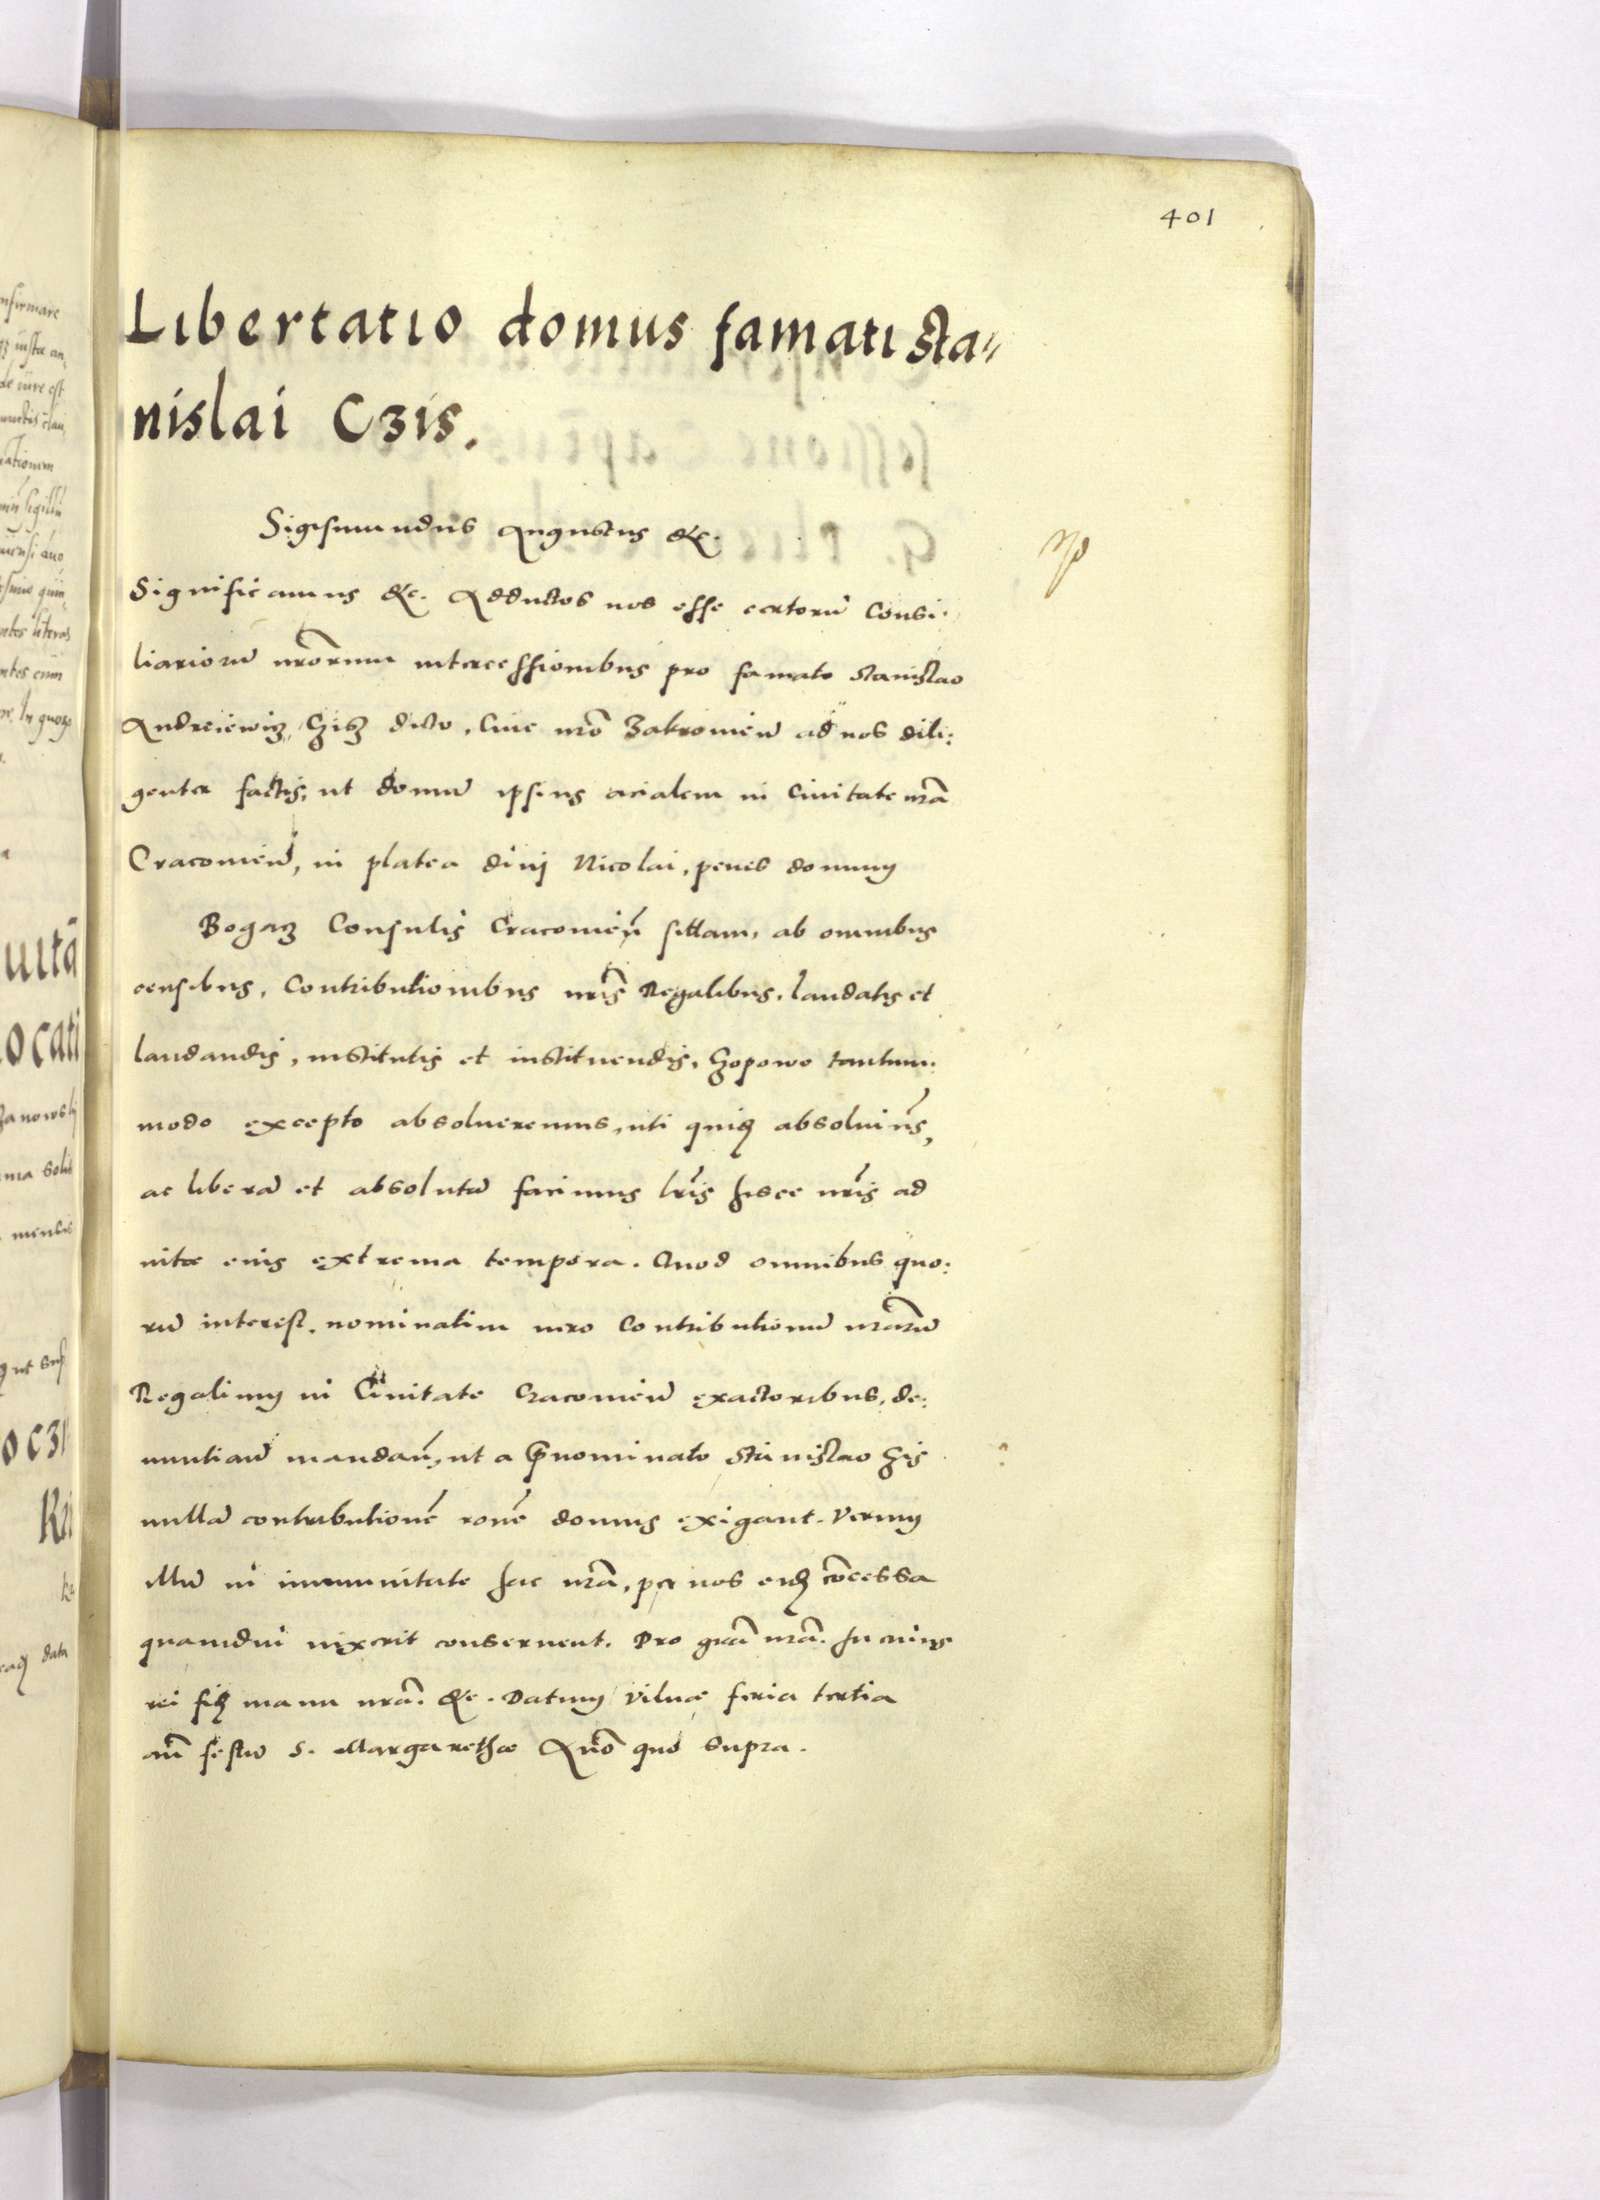 401
Libertatio domus famati Sta„
nislai Czis.
Sigismundus Augustus &c.
Significamus &c. Adductos nos esse certorū Consi:
liariorū nr̄orum intercessionibus pro famato Stanislao
Andreiewicz, Czisz dicto, Ciue nr̄o Zakromieñ ad nos dili:
genter factis, ut domū ipsius acialem in Ciuitate nr̄a
Cracouieñ, in platea diui Nicolai, penes domum
Bogacz Consulis Cracouieñ sittam, ab omnibus
censibus, Contributionibus nr̄is Regalibus, laudatis et
laudandis, institutis et instituendis, Czopowe tantum:
modo excepto absolueremus, uti quidem absoluim̄s,
ac liberā et absolutā facimus lr̄is hisce nr̄is ad
uitæ eius extrema tempora. Quod omnibus quo:
rū interest, nominatim uero Contributionū nr̄arū
Regalium in Ciuitate Cracouieñ exactoribus, de:
nuntiañ mandañ, ut a p̄nominato Stanislao Czis
nullā contributionē ronē domus exigant. Verum
illū in immunitate hac nr̄a, per nos eidem cōcessa
quamdiu uixerit conseruent. Pro gr̄a nr̄a. In cuius
rei fidem manu nr̄a. &c. Datum Vilnæ feria tertia
añ festū S. Margarethæ Anō quo supra.